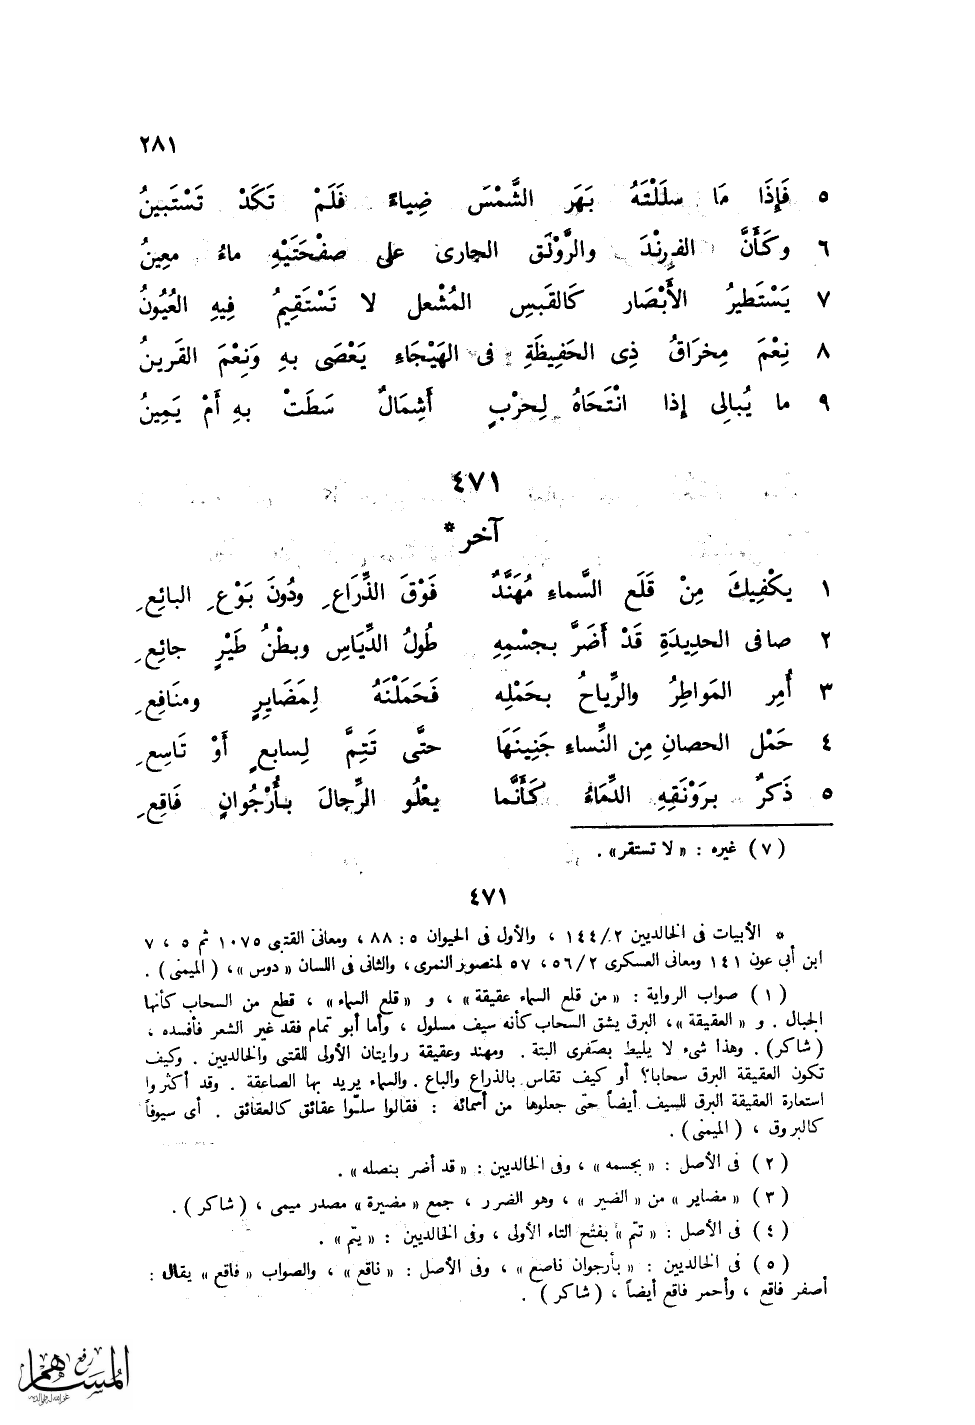 ٢٨١
٥ فَإِذَا مَا سللْتَهُ بَهَر الشَّمْسَ ضِياءً فَلَمْ تَكَدْ تَسْتَبينُ
٦ وكَأَنَّ الفرِنْدَ والرَّوْنَق الجارى على صفْحَتَيْهِ ماءُ معِينُ
٧ يَسْتَطيرُ الأَبْصَار كَالقَبسِ المُشْعل لا تَسْتَقِيمُ فِيهِ العُيُونُ
٨ نِعْمَ مِخراقُ ذِى الحَفيظَةِ فى الهَيْجَاءِ يَعْصَى بهِ وَنِعْمَ القَرينُ
٩ ما يُبالِى إذا انْتَحَاهُ لِحرْبٍ أَشِمَالٌ سَطَتْ بهِ أَمْ يَمِينُ
٤٧١
آخر *
١ يكْفِيكَ مِنْ قَلَع السَّماءِ مُهَنَّدٌ فَوْقَ الذِّرَاعِ ودُونَ بَوْعِ البائِعِ
٢ صافى الحدِيدَةِ قَدْ أَضَرَّ بجسْمِهِ طُولُ الدِّيَاسِ وبطْنُ طَيْرٍ جائِعِ
٣ أُمِر المَواطِرُ والرِّياحُ بحَمْلِه فَحَمَلْنَهُ لِمَضَايِرٍ ومنَافِعِ
٤ حَمْل الحصانِ مِن النِّساءِ جَنِينَهَا حتَّى تَتِمَّ لِسابعٍ أَوْ تَاسِعِ
٥ ذَكرٌ برَوْنَقِهِ الدِّمَاءُ كَأَنَّما يعْلُو الرِّجالَ بأُرْجُوانٍ فَاقِعِ
(٧) غيره : « لا تستقر» .
٤٧١
* الأبيات فى الخالديين ٢/ ١٤٤ ، والأول فى الحيوان ٥ : ٨٨ ، ومعانى القتبى ١٠٧٥ ثم ٥ ، ٧
ابن أبى عون ١٤١ ومعانى العسكرى ٢/ ٥٦ ، ٥٧ لمنصور النمرى، والثانى فى اللسان « دوس» ، (الميمنى) .
(١) صواب الرواية : « من قلع السماء عقيقة » ، و « قلع السماء » ، قطع من السحاب كأنها
الجبال . و « العقيقة » ، البرق يشق السحاب كأنه سيف مسلول ، وأما أبو تمام فقد غير الشعر فأفسده ،
(شاكر) . وهذا شىء لا يليط بصفرى البتة . ومهند وعقيقة روايتان الأولى للقتبى والخالديين . وكيف
تكون العقيقة البرق سحابا؟ أو كيف تقاس بالذراع والباع . والسماء يريد بها الصاعقة . وقد أكثروا
استعارة العقيقة البرق للسيف أيضاً حتى جعلوها من أسمائه : فقالوا سلّوا عقائق كالعقائق . أى سيوفاً
كالبروق ، (الميمنى) .
(٢) فى الأصل : « بجسمه » ، وفى الخالديين : « قد أضر بنصله » .
(٣) « مضاير » من « الضير » ، وهو الضرر ، جمع « مضيرة » مصدر ميمى ، (شاكر) .
(٤) فى الأصل : « تتم » بفتح التاء الأولى ، وفى الخالديين : « يتم » .
(٥) فى الخالديين : « بأرجوان ناصع » ، وفى الأصل : « ناقع » ، والصواب « فاقع » يقال :
أصفر فاقع ، وأحمر فاقع أيضاً ، (شاكر) .